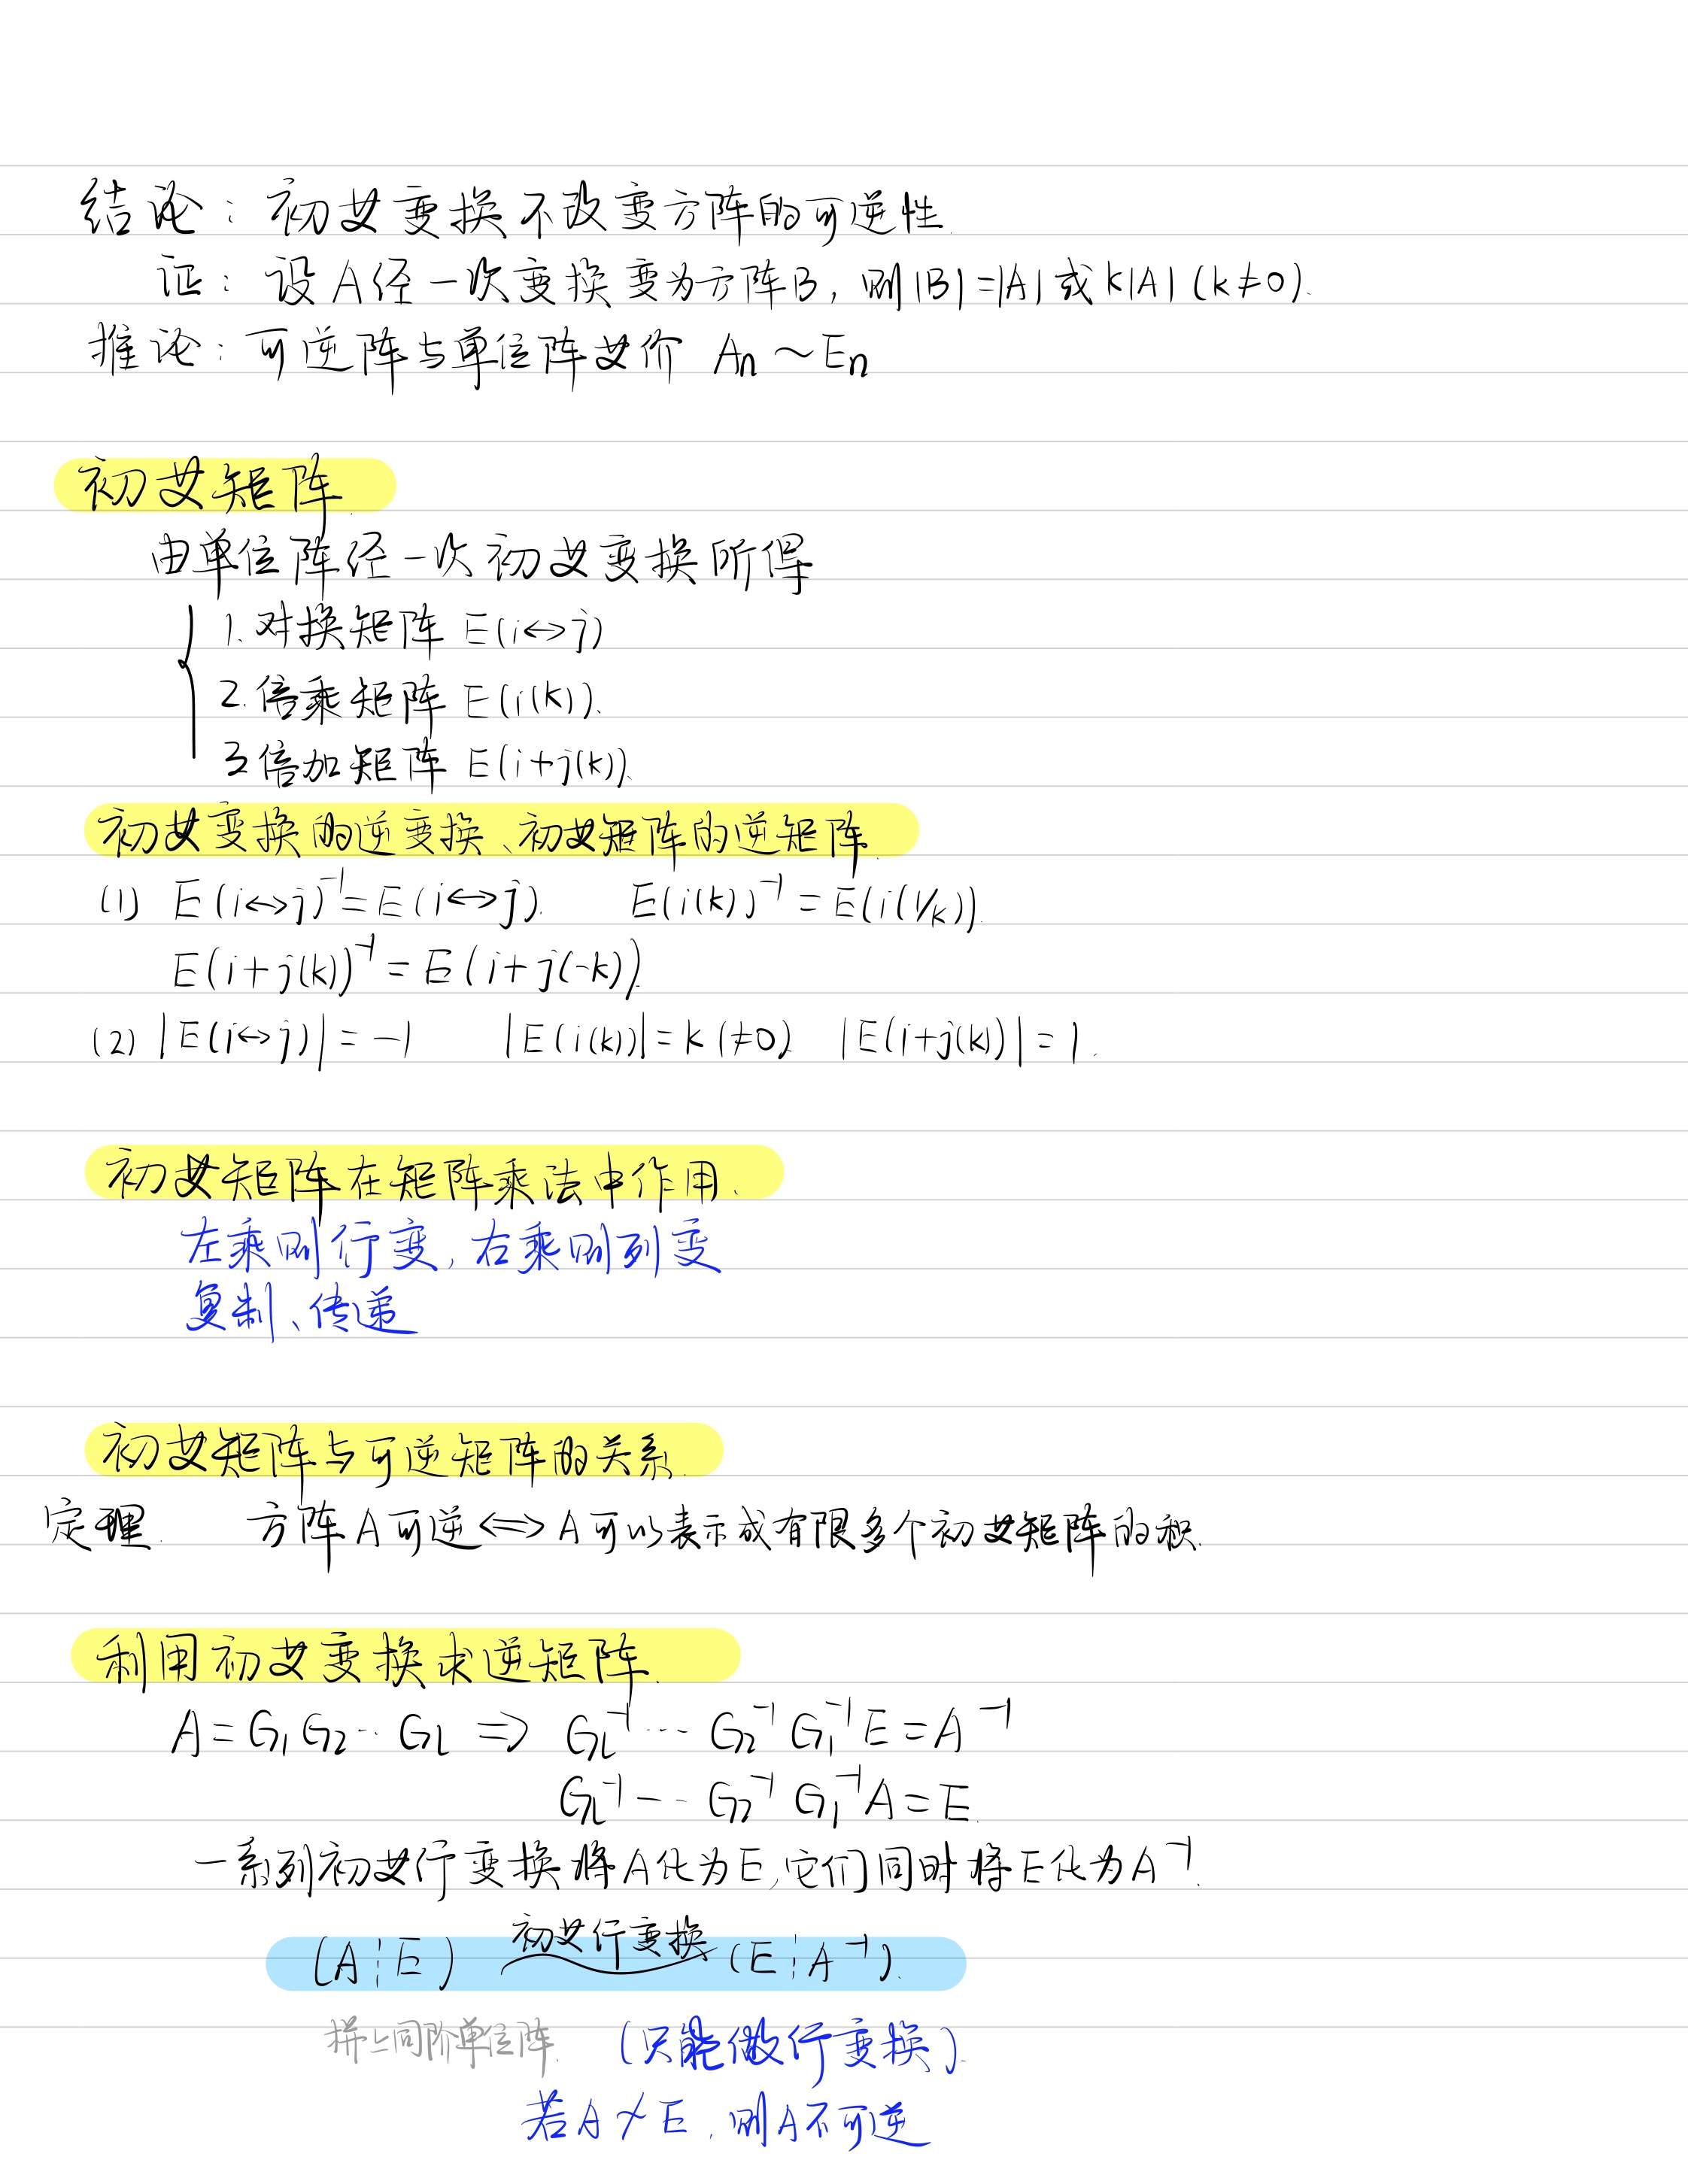 结论：初等变换不改变方阵的可逆性.
证：设A经一次变换变为方阵B，则|B|=|A|或k|A| (k≠0).
推论：可逆阵与单位阵等价 An～En
初等矩阵.
由单位阵经一次初等变换所得
1.对换矩阵 E(i↔j)
2.倍乘矩阵 E(i(k)).
3.倍加矩阵 E(i+j(k)).
初等变换的逆变换、初等矩阵的逆矩阵.
(1) E(i↔j)⁻¹=E(i↔j). E(i(k))⁻¹=E(i(1/k)).
E(i+j(k))⁻¹=E(i+j(-k)).
(2) |E(i↔j)|=-1 |E(i(k))|=k (≠0) |E(i+j(k))|=1.
初等矩阵在矩阵乘法中作用.
左乘则行变，右乘则列变
复制、传递
初等矩阵与可逆矩阵的关系.
定理. 方阵A可逆⇔A可以表示成有限多个初等矩阵的积.
利用初等变换求逆矩阵.
A=G₁G₂…Gl ⇒ Gl⁻¹…G₂⁻¹G₁⁻¹E=A⁻¹
Gl⁻¹…G₂⁻¹G₁⁻¹A=E.
一系列初等行变换将A化为E,它们同时将E化为A⁻¹.
初等行变换
(A¦E) (E¦A⁻¹).
拼上同阶单位阵. (只能做行变换).
若A≁E，则A不可逆